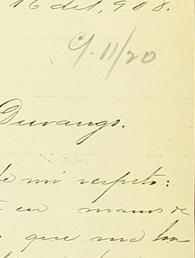 16 del, 908.
C. 11/20
Durango.
de mi respeto:
en manos de
que me han